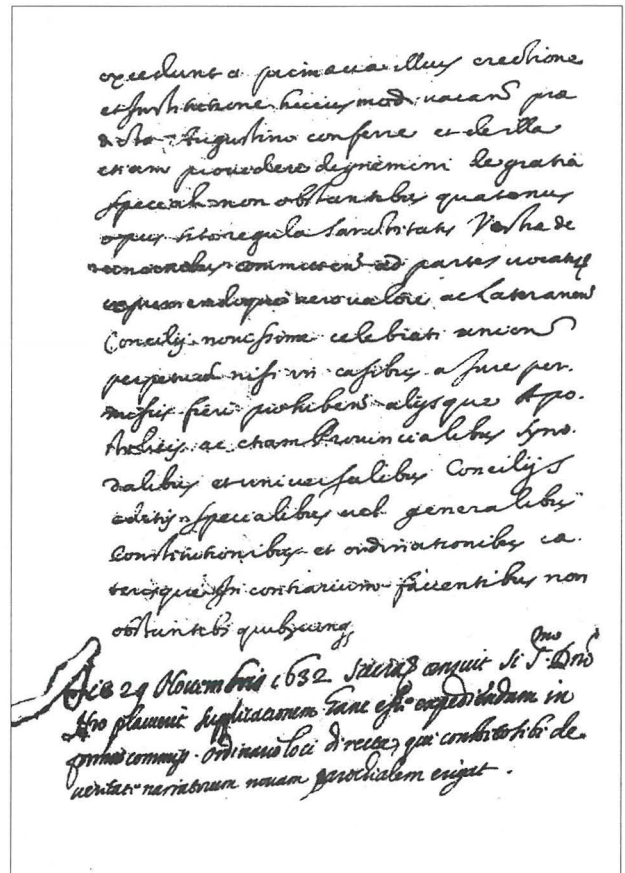 excedunt a primaeva illius erectione
et Institutione huius mod. vacan prae
dicto Augustino conferre et de illa
etiam providere dignemini de gratia
speciali non obstantibus quatenus
opus sit regula Sanctitatis Vestrae de
committen ad partes vocatis
vero valore ac Lateranen
Concilij novissime celebrati uncion
perpetuas nisi in casibus a Jure per-
missis fieri prohiben alijsque Apo-
ac etiam Provincialibus Syno-
dalibus et universalibus Concilijs
editis specialibus vel generalibus
constitutionibus et ordinationibus ca
terisque In contrarium facientibus non
obstantibs quibuscunq
Die 29 Novembris 1632 Sacra censuit si Smo Dno
Nro placuerit supplicationem hanc esse expediendam in
forma commiss. Ordinario loci directa, qui constito sibi de
veritate narratorum novam parochialem erigat.